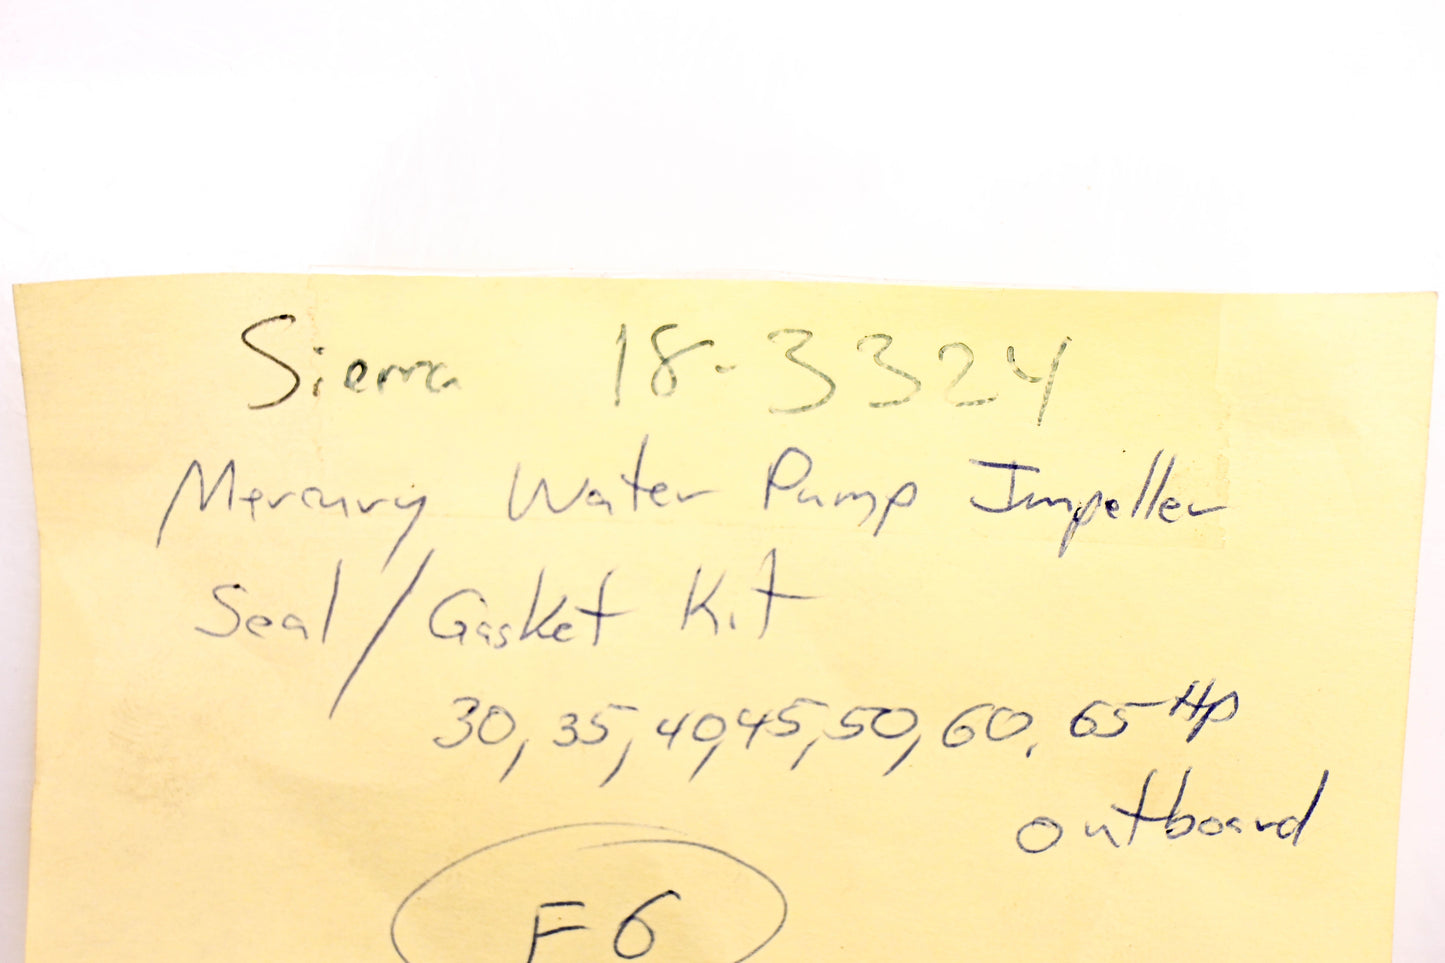 Sierra 18-3324
Mercury Water Pump Impeller
Seal/Gasket Kit
30, 35, 40, 45, 50, 60, 65 HP
outboard
F6